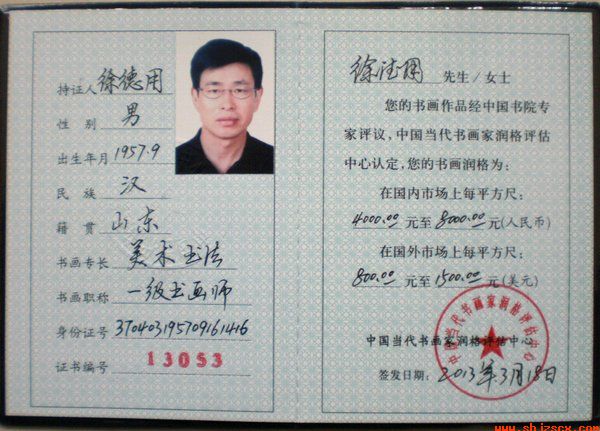 持证人 徐德用
性 别 男
出生年月 1957.9
民 族 汉
籍 贯 山东
书画专长 美术书法
书画职称 一级书画师
身份证号 370403195709161416
证书编号 13053
徐德用 先生/女士
您的书画作品经中国书院专
家评议，中国当代书画家润格评估
中心认定，您的书画润格为：
在国内市场上每平方尺：
4000.00 元至 8000.00 元(人民币)
在国外市场上每平方尺：
800.00 元至 1500.00 元(美元)
中国当代书画家润格评估中心
中国当代书画家润格评估中心
签发日期：2013年3月18日
www.shjzscx.com